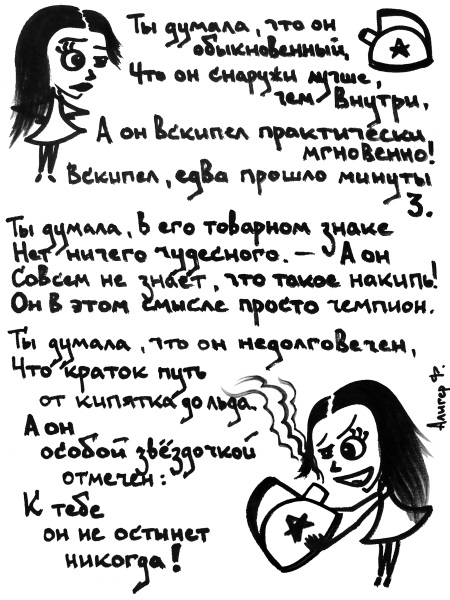 Ты думала, что он
обыкновенный,
Что он снаружи лучше,
чем внутри,
А он вскипел практически
мгновенно!
Вскипел, едва прошло минуты
3.
Ты думала, в его товарном знаке
Нет ничего чудесного. – А он
Совсем не знает, что такое накипь!
Он в этом смысле просто чемпион.
Ты думала, что он недолговечен,
Что краток путь
от кипятка до льда.
А он
особой звёздочкой
отмечен:
К тебе
он не остынет
никогда!
Алигер Ф.